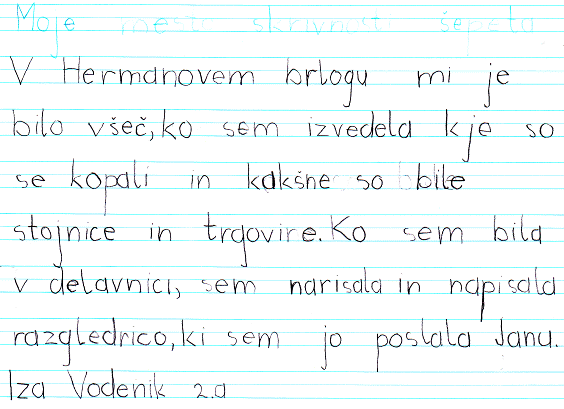 Moje mesto skrivnosti šepeta
V Hermanovem brlogu mi je
bilo všeč, ko sem izvedela kje so
se kopali in kakšne so bile
stojnice in trgovire. Ko sem bila
v delavnici, sem narisala in napisala
razgledrico, ki sem jo poslala Janu.
Iza Vodenik 2.a